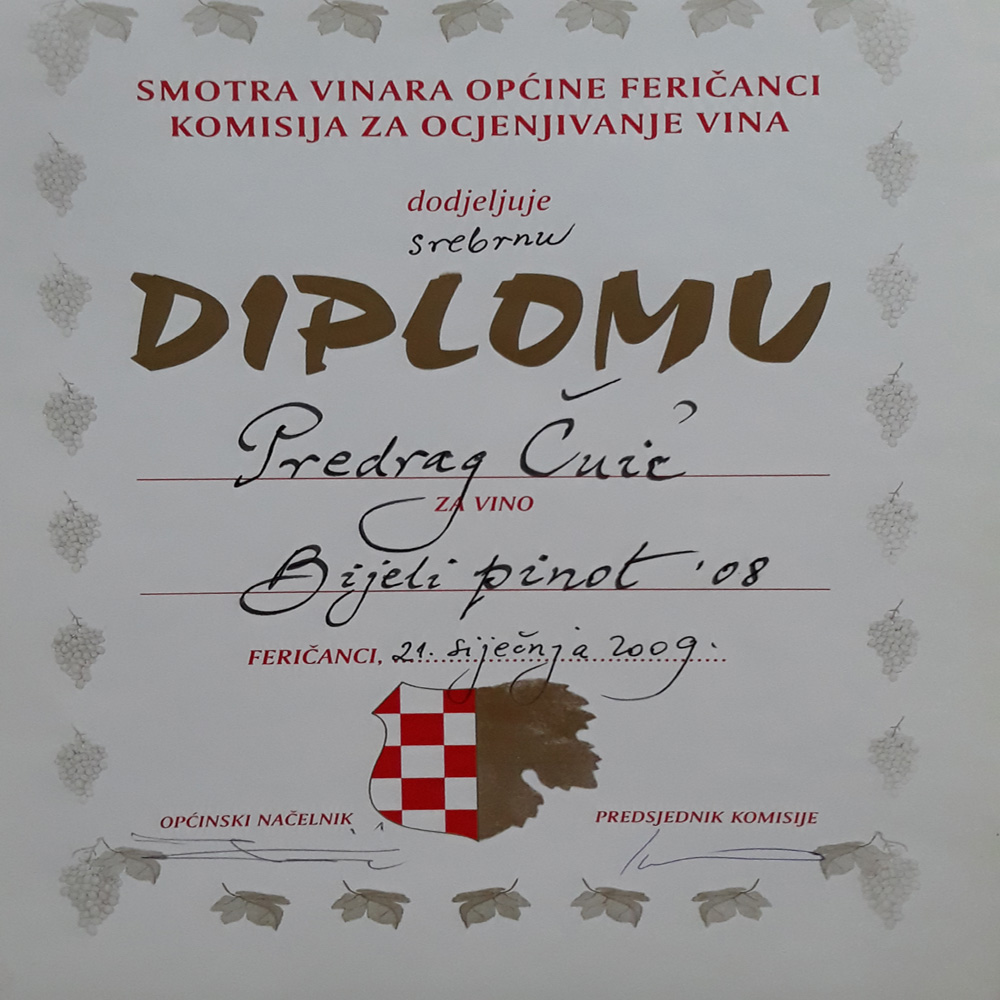 SMOTRA VINARA OPĆINE FERIČANCI
KOMISIJA ZA OCJENJIVANJE VINA
dodjeljuje
srebrnu
DIPLOMU
Predrag Čuić
ZA VINO
Bijeli pinot '08
FERIČANCI, 21. siječnja 2009.
OPĆINSKI NAČELNIK PREDSJEDNIK KOMISIJE